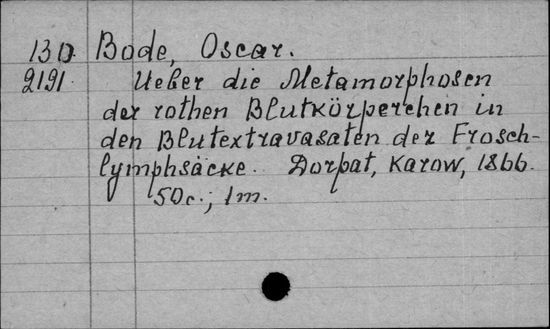 130 Bode, Oscar.
2191 Ueber die Metamorphosen
der rothen Blutkörperchen in
den Blutextravasaten der Frosch-
lymphsäcke. Dorpat, Karow, 1866.
50c.; 1m.